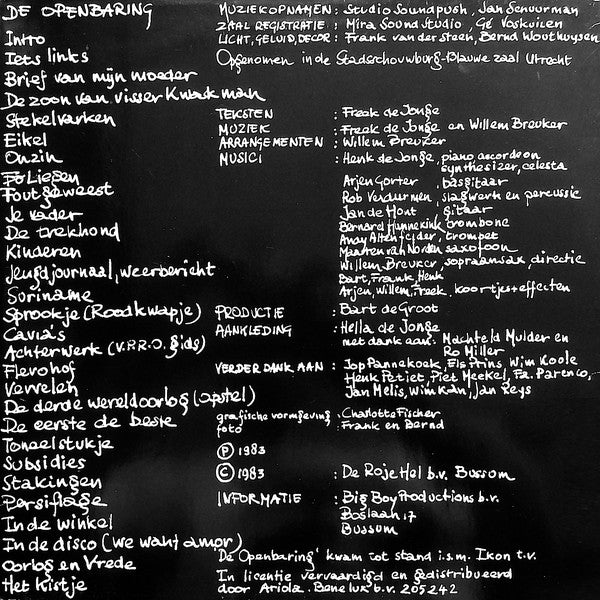 DE OPENBARING
Intro
Iets links
Brief van mijn moeder
De zoon van visser Kwakman
Stekelvarken
Eikel
Onzin
Poliepen
Fout geweest
Je vader
De trekhond
Kinderen
Jeugdjournaal, weerbericht
Suriname
Sprookje (Roodkwapje)
Cavia's
Achterwerk (V.P.R.O. gids)
Flevohof
Vervelen
De derde wereldoorlog (opstel)
De eerste de beste
Toneelstukje
Subsidies
Stakingen
Persiflage
In de winkel
In de disco (we want amor)
Oorlog en Vrede
Het kistje
MUZIEKOPNAMEN: Studio Soundpush, Jan Schuurman
ZAAL REGISTRATIE: Mira Sound Studio, Gé Voskuilen
LICHT, GELUID, DECOR: Frank van der Steen, Bernd Wouthuysen
Opgenomen in de Stadsschouwburg-Blauwe zaal Utrecht
TEKSTEN : Freek de Jonge
MUZIEK : Freek de Jonge en Willem Breuker
ARRANGEMENTEN : Willem Breuker
MUSICI : Henk de Jonge, piano, accordeon
synthesizer, celesta
Arjen Gorter, basgitaar
Rob Verdurmen, slagwerk en percussie
Jan de Hont, gitaar
Bernard Hunnekink, trombone
Andy Altenfelder, trompet
Maarten van Norden saxofoon
Willem Breuker, sopraansax, directie
Bart, Frank, Henk
Arjen, Willem, Freek, koortjes + effecten
PRODUCTIE : Bart de Groot
AANKLEDING : Hella de Jonge
met dank aan: Machteld Mulder en
Ro Miller
VERDER DANK AAN : Jop Pannekoek, Els Prins, Wim Koole
Henk Petiet, Piet Meekel, Fa. Parenco,
Jan Melis, Wim Kan, Jan Reys
grafische vormgeving : Charlotte Fischer
foto : Frank en Bernd
Ⓟ 1983
© 1983 : De Roje Hel b.v. Bussum
INFORMATIE : Big Boy Productions b.v.
Boslaan 17
Bussum
'De Openbaring' kwam tot stand i.s.m. Ikon t.v.
In licentie vervaardigd en gedistribueerd
door Ariola Benelux b.v. 205242